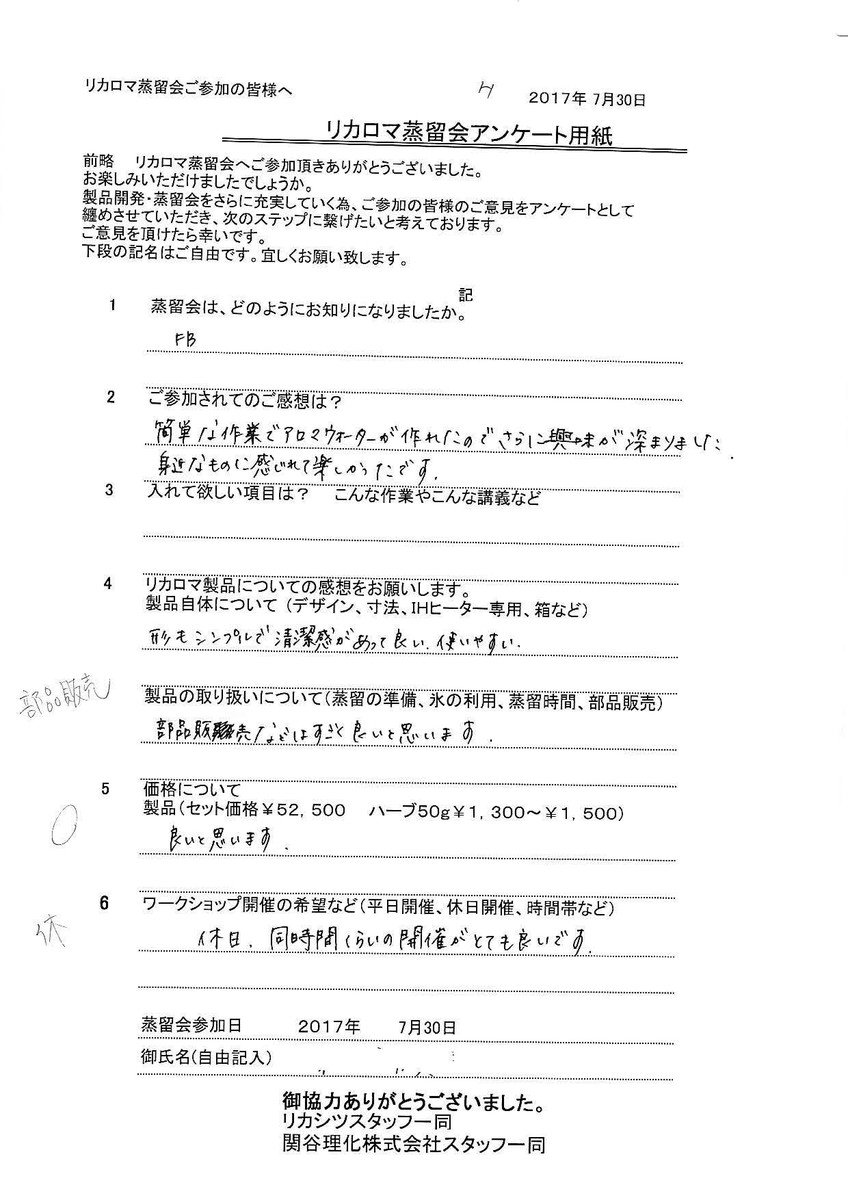 リカロマ蒸留会ご参加の皆様へ
2017年 7月30日
リカロマ蒸留会アンケート用紙
前略 リカロマ蒸留会へご参加頂きありがとうございました。
お楽しみいただけましたでしょうか。
製品開発・蒸留会をさらに充実していく為、ご参加の皆様のご意見をアンケートとして
纏めさせていただき、次のステップに繋げたいと考えております。
ご意見を頂けたら幸いです。
下段の記名はご自由です。宜しくお願い致します。
記
1 蒸留会は、どのようにお知りになりましたか。
FB
2 ご参加されてのご感想は?
簡単な作業でアロマウォーターが作れたのでさらに興味が深まりました.
身近なものに感じれて楽しかったです.
3 入れて欲しい項目は? こんな作業やこんな講義など
4 リカロマ製品についての感想をお願いします。
製品自体について(デザイン、寸法、IHヒーター専用、箱など)
形もシンプルで清潔感があって良い.使いやすい.
部品販売
製品の取り扱いについて(蒸留の準備、氷の利用、蒸留時間、部品販売)
部品販売などはすごく良いと思います.
5 価格について
製品(セット価格¥52,500 ハーブ50g¥1,300~¥1,500)
良いと思います.
6 ワークショップ開催の希望など(平日開催、休日開催、時間帯など)
休
休日.同時間くらいの開催がとても良いです.
蒸留会参加日 2017年 7月30日
御氏名(自由記入)
御協力ありがとうございました。
リカシツスタッフ一同
関谷理化株式会社スタッフ一同